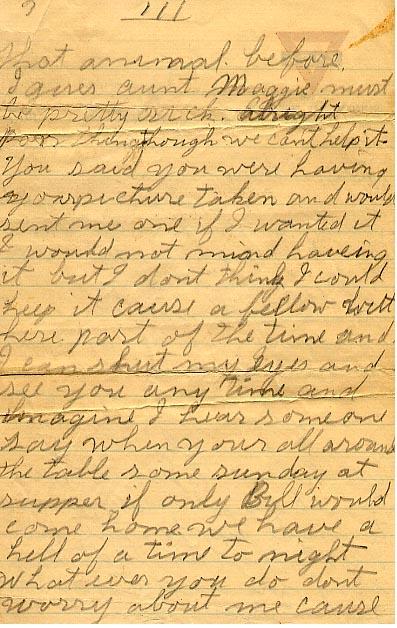 III
that animal before.
I guess aunt Maggie must
be pretty sick. Alright
poor thing though we cant help it
You said you were having
your picture taken and would
sent me one if I wanted it
I would not mind haveing
it but I dont think I could
keep it cause a fellow
here part of the time and
I can shut my eyes and
see you any time and
imagine I hear someone
say when your all around
the table some sunday at
supper if only Bill would
come home we have a
hell of a time to night
what ever you do dont
worry about me cause